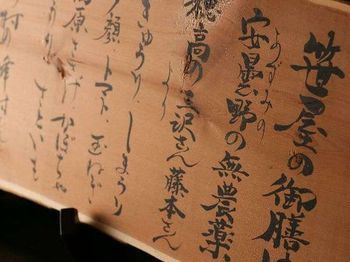 笹屋の御膳は
安曇野の無農薬
あずみの
穂高の三沢さん藤本さん
より
きゅうり、しまうり
夕顔 トマト 玉ねぎ
かぼちゃ
さといも